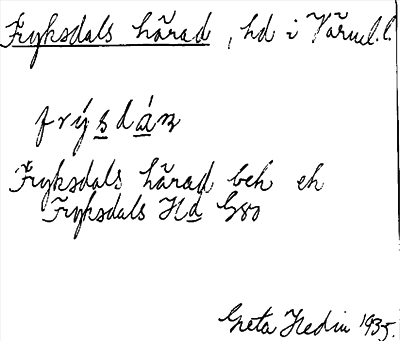 Fryksdals härad, hd i Värml. l.
frýsdáɴ
Fryksdals härad beh eh
Fryksdals Hd G80
Greta Hedin 1935.